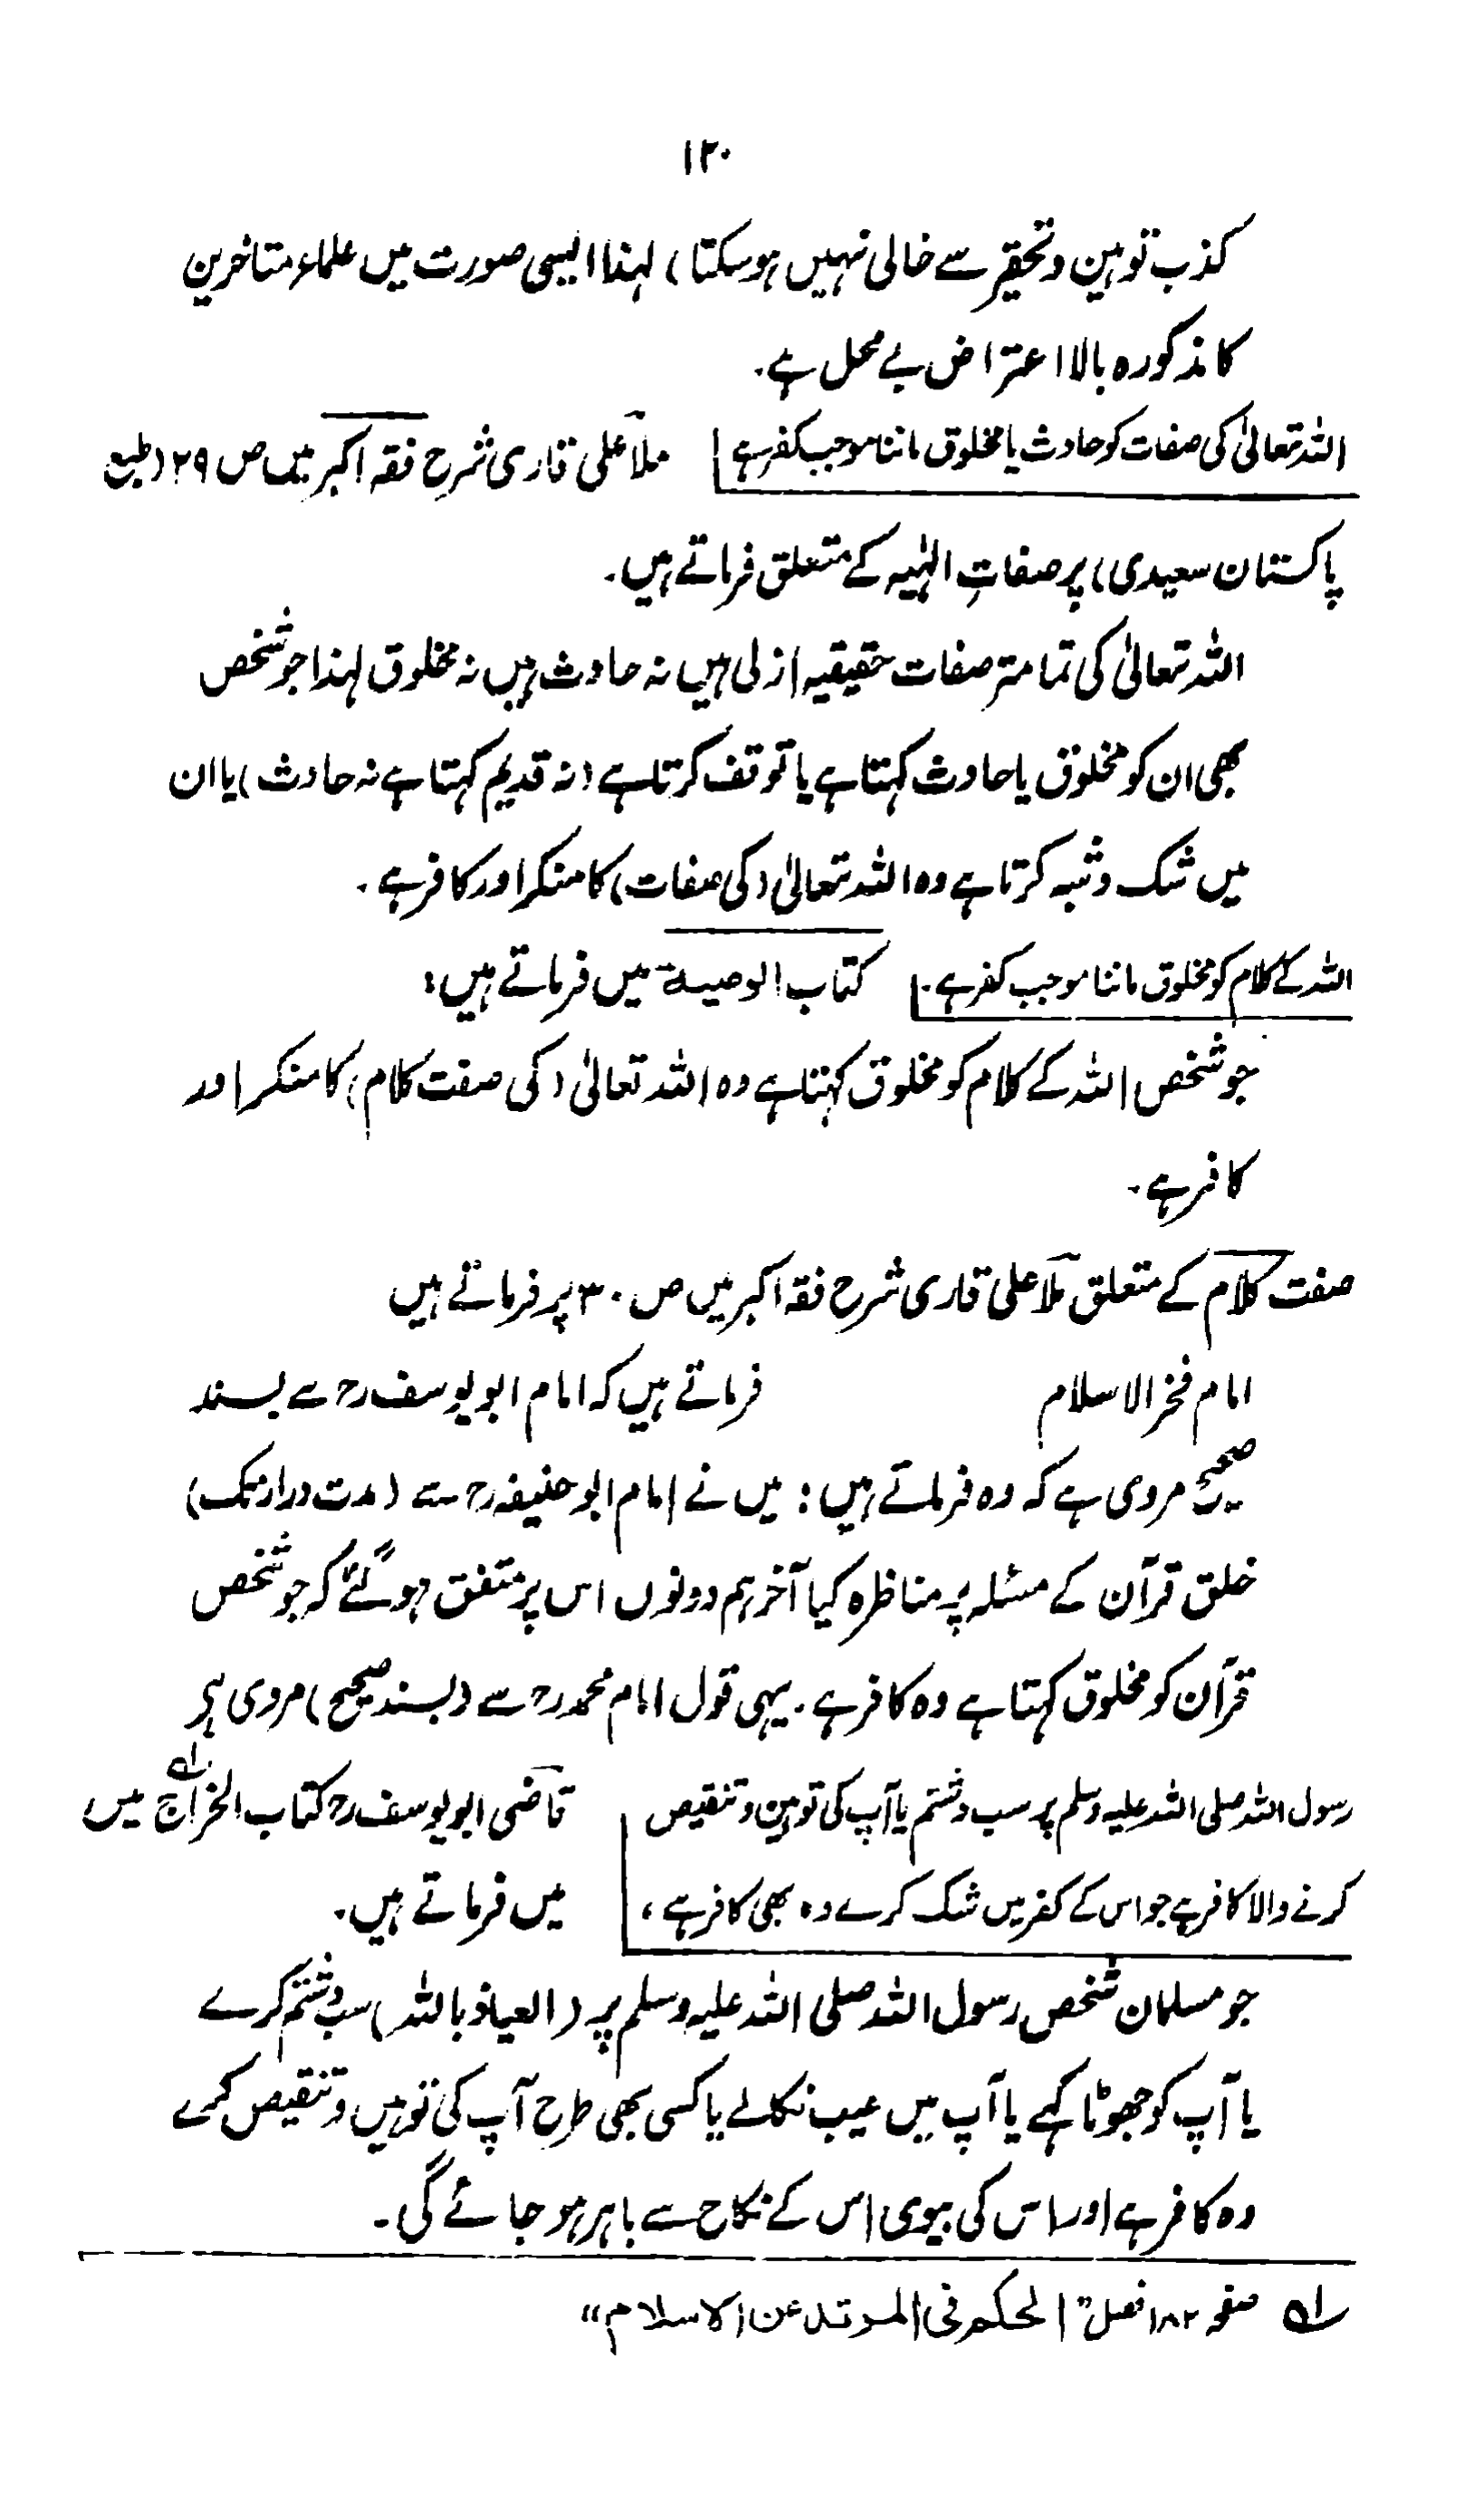 ۱۲۰
کذب توہین و تحقیر سے خالی نہیں ہو سکتا) لہٰذا ایسی صورت میں علماء متاخرین
کا مذکورہ بالا اعتراض بے محل ہے.
اللہ تعالیٰ کی صفات کو حادث یا مخلوق ماننا موجب کفر ہے ملا علی قاری شرح فقہ اکبر میں ص ۲۹ (طبع
پاکستان سعیدی) پر صفاتِ الٰہیہ کے متعلق فرماتے ہیں.
اللہ تعالیٰ کی تمامتر صفات حقیقیہ ازلی ہیں نہ حادث ہیں نہ مخلوق لہٰذا جو شخص
بھی ان کو مخلوق یا حادث کہتا ہے یا توقف کرتا ہے (نہ قدیم کہتا ہے نہ حادث) یا ان
میں شک و شبہ کرتا ہے وہ اللہ تعالیٰ (کی صفات) کا منکر اور کافر ہے.
اللہ کے کلام کو مخلوق ماننا موجب کفر ہے. کتاب الوصیۃ میں فرماتے ہیں:
جو شخص اللہ کے کلام کو مخلوق کہتا ہے وہ اللہ تعالیٰ (کی صفت کلام) کا منکر اور
کافر ہے.
صفت کلام کے متعلق ملا علی قاری شرح فقہ اکبر میں ص ۳۰ پر فرماتے ہیں
امام فخر الاسلام فرماتے ہیں کہ امام ابو یوسف رح سے بسند
صحیح مروی ہے کہ وہ فرماتے ہیں: میں نے امام ابو حنیفہ رح سے (مدت دراز تک)
خلق قرآن کے مسئلہ پہ مناظرہ کیا آخر ہم دونوں اس پر متفق ہو گئے کہ جو شخص
قرآن کو مخلوق کہتا ہے وہ کافر ہے. یہی قول امام محمد رح سے (بسند صحیح) مروی ہے
رسول اللہ صلی اللہ علیہ وسلم پر سب و شتم یا آپ کی توہین و تنقیص قاضی ابو یوسف رح کتاب الخراج لہ میں
کرنے والا کافر ہے جو اس کے کفر میں شک کرے وہ بھی کافر ہے، میں فرماتے ہیں.
جو مسلمان شخص رسول اللہ صلی اللہ علیہ وسلم پر (العیاذ باللہ) سب و شتم کرے
یا آپ کو جھوٹا کہے یا آپ میں عیب نکالے یا کسی بھی طرح آپ کی توہین و تنقیص کرے
وہ کافر ہے اور اس کی بیوی اس کے نکاح سے باہر ہو جائے گی.
لہ صفحہ ۱۸۲ فصل "الحکم فی المرتد عن الاسلام"